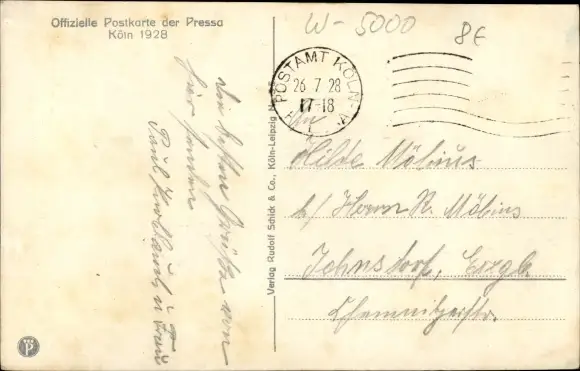 Offizielle Postkarte der Pressa
Köln 1928
W-5000
8€
POSTAMT KÖLN
26 7 28
17-18
Die besten Grüße von
hier senden
Paul u Frau
Verlag Rudolf Schick & Co., Köln-Leipzig
Hilde Möbius
b/ Herrn R. Möbius
Jahnsdorf, Erzgb.
Chemnitzerstr.
P